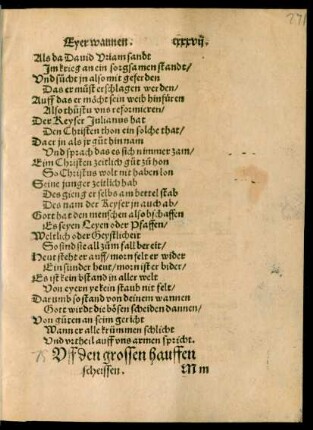 Eyer wannen. cxxxvij.
Als da Dauid Vriam sandt
Im krieg an ein sorgsamen standt/
Vnd sücht in also mit geferden
Das er müst erschlagen werden/
Auff das er möcht sein weib hinfüren
Also thüstu vns reformieren/
Der Keyser Julianus hat
Den Christen thon ein solche that/
Da er in als jr güt hin nam
Vnd sprach das es sich nimmer zam/
Eim Christen zeitlich güt zů hon
So Christus wolt nit haben lon
Seine junger zeitlich hab
Des gieng er selbs am bettel stab
Des nam der Keyser in auch ab/
Gott hat den menschen also bschaffen
Es seyen Leyen oder Pfaffen/
Weltlich oder Geystlicheit
So sind sie all zům fall bereit/
Heut steht er auff/ morn felt er wider
Ein sunder heut/ morn ist er bider/
Es ist kein bstand in aller welt
Von eyern yekein staub nit felt/
Darumb so stand von deinem wannen
Gott wirdt die bösen scheiden dannen/
Von güten an seim gericht
Wann er alle krümmen schlicht
Vnd vrtheil auff vns armen spricht.
Vff den grossen hauffen
scheissen. Mm